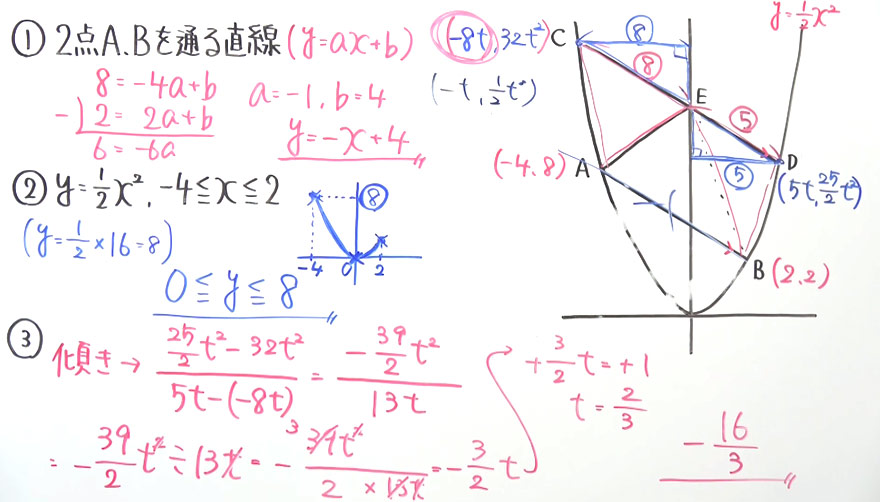 ① 2点A.Bを通る直線 (y=ax+b)
8=-4a+b
-) 2= 2a+b
6=-6a
a=-1, b=4
y=-x+4
② y=1/2x², -4≦x≦2
(y=1/2×16=8)
⑧
-4 0 2
0≦y≦8
③ 傾き→ (25/2t²-32t²)/(5t-(-8t)) = (-39/2t²)/(13t)
=-39/2t²÷13t=-(39t²)/(2×13t)=-3/2t
3
+3/2t=+1
t=2/3
-16/3
y=1/2x²
(-8t, 32t²) C
⑧
⑧
(-t, 1/2t²)
E
⑤
(-4, 8) A
D
⑤
(5t, 25/2t²)
B (2,2)